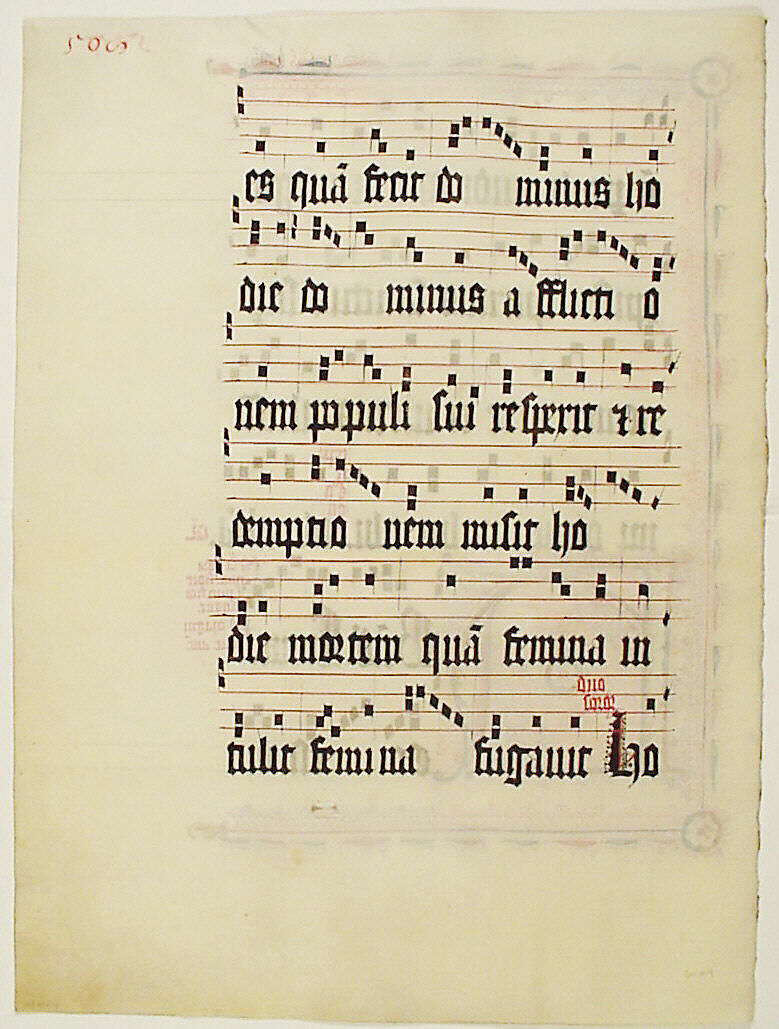 es quā fecit do minus ho
die do minus a fflicti o
nem populi sui respexit ⁊ re
demptio nem misit ho
die mortem quā femina in
tulit femina fugauit
duo
Ho